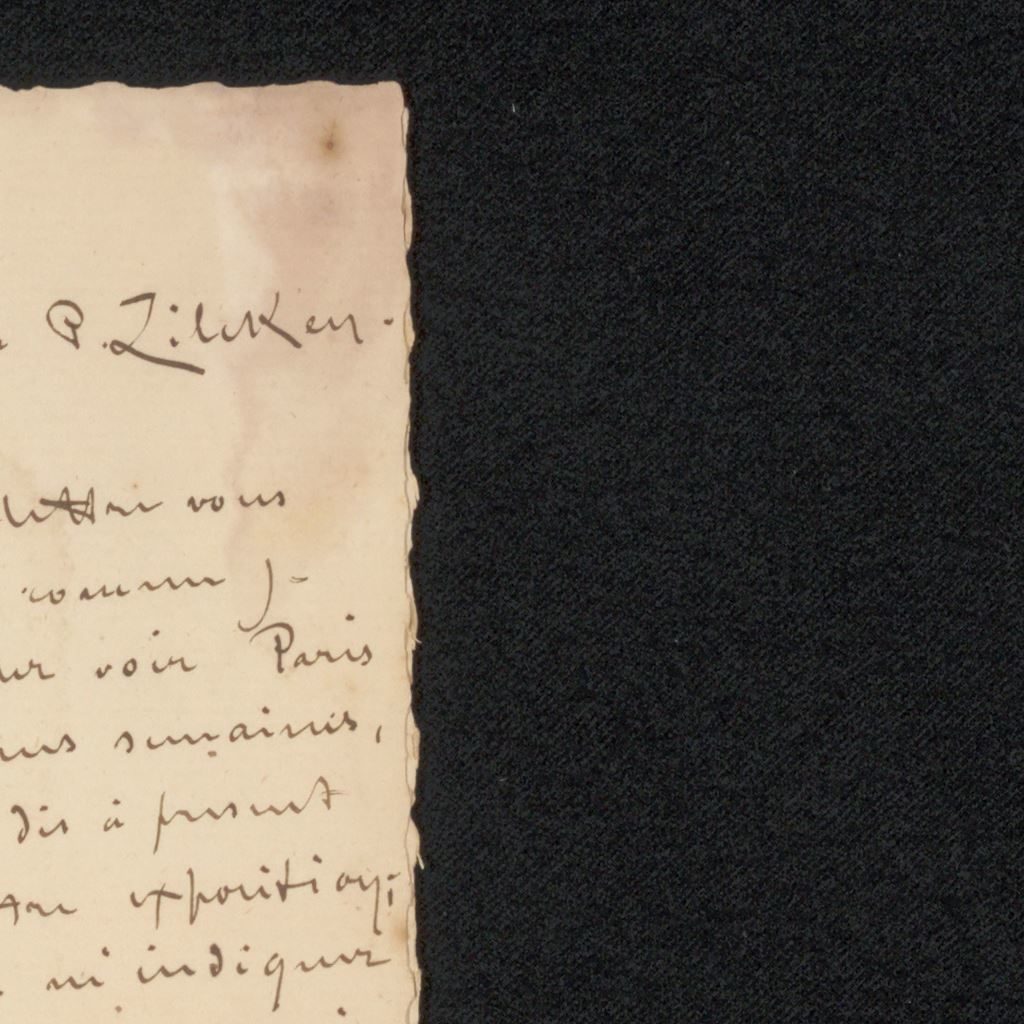 P. Zilcken.
lettre vous
comme) -
voir Paris
semaines,
dis à present
exposition;
m'indiquer